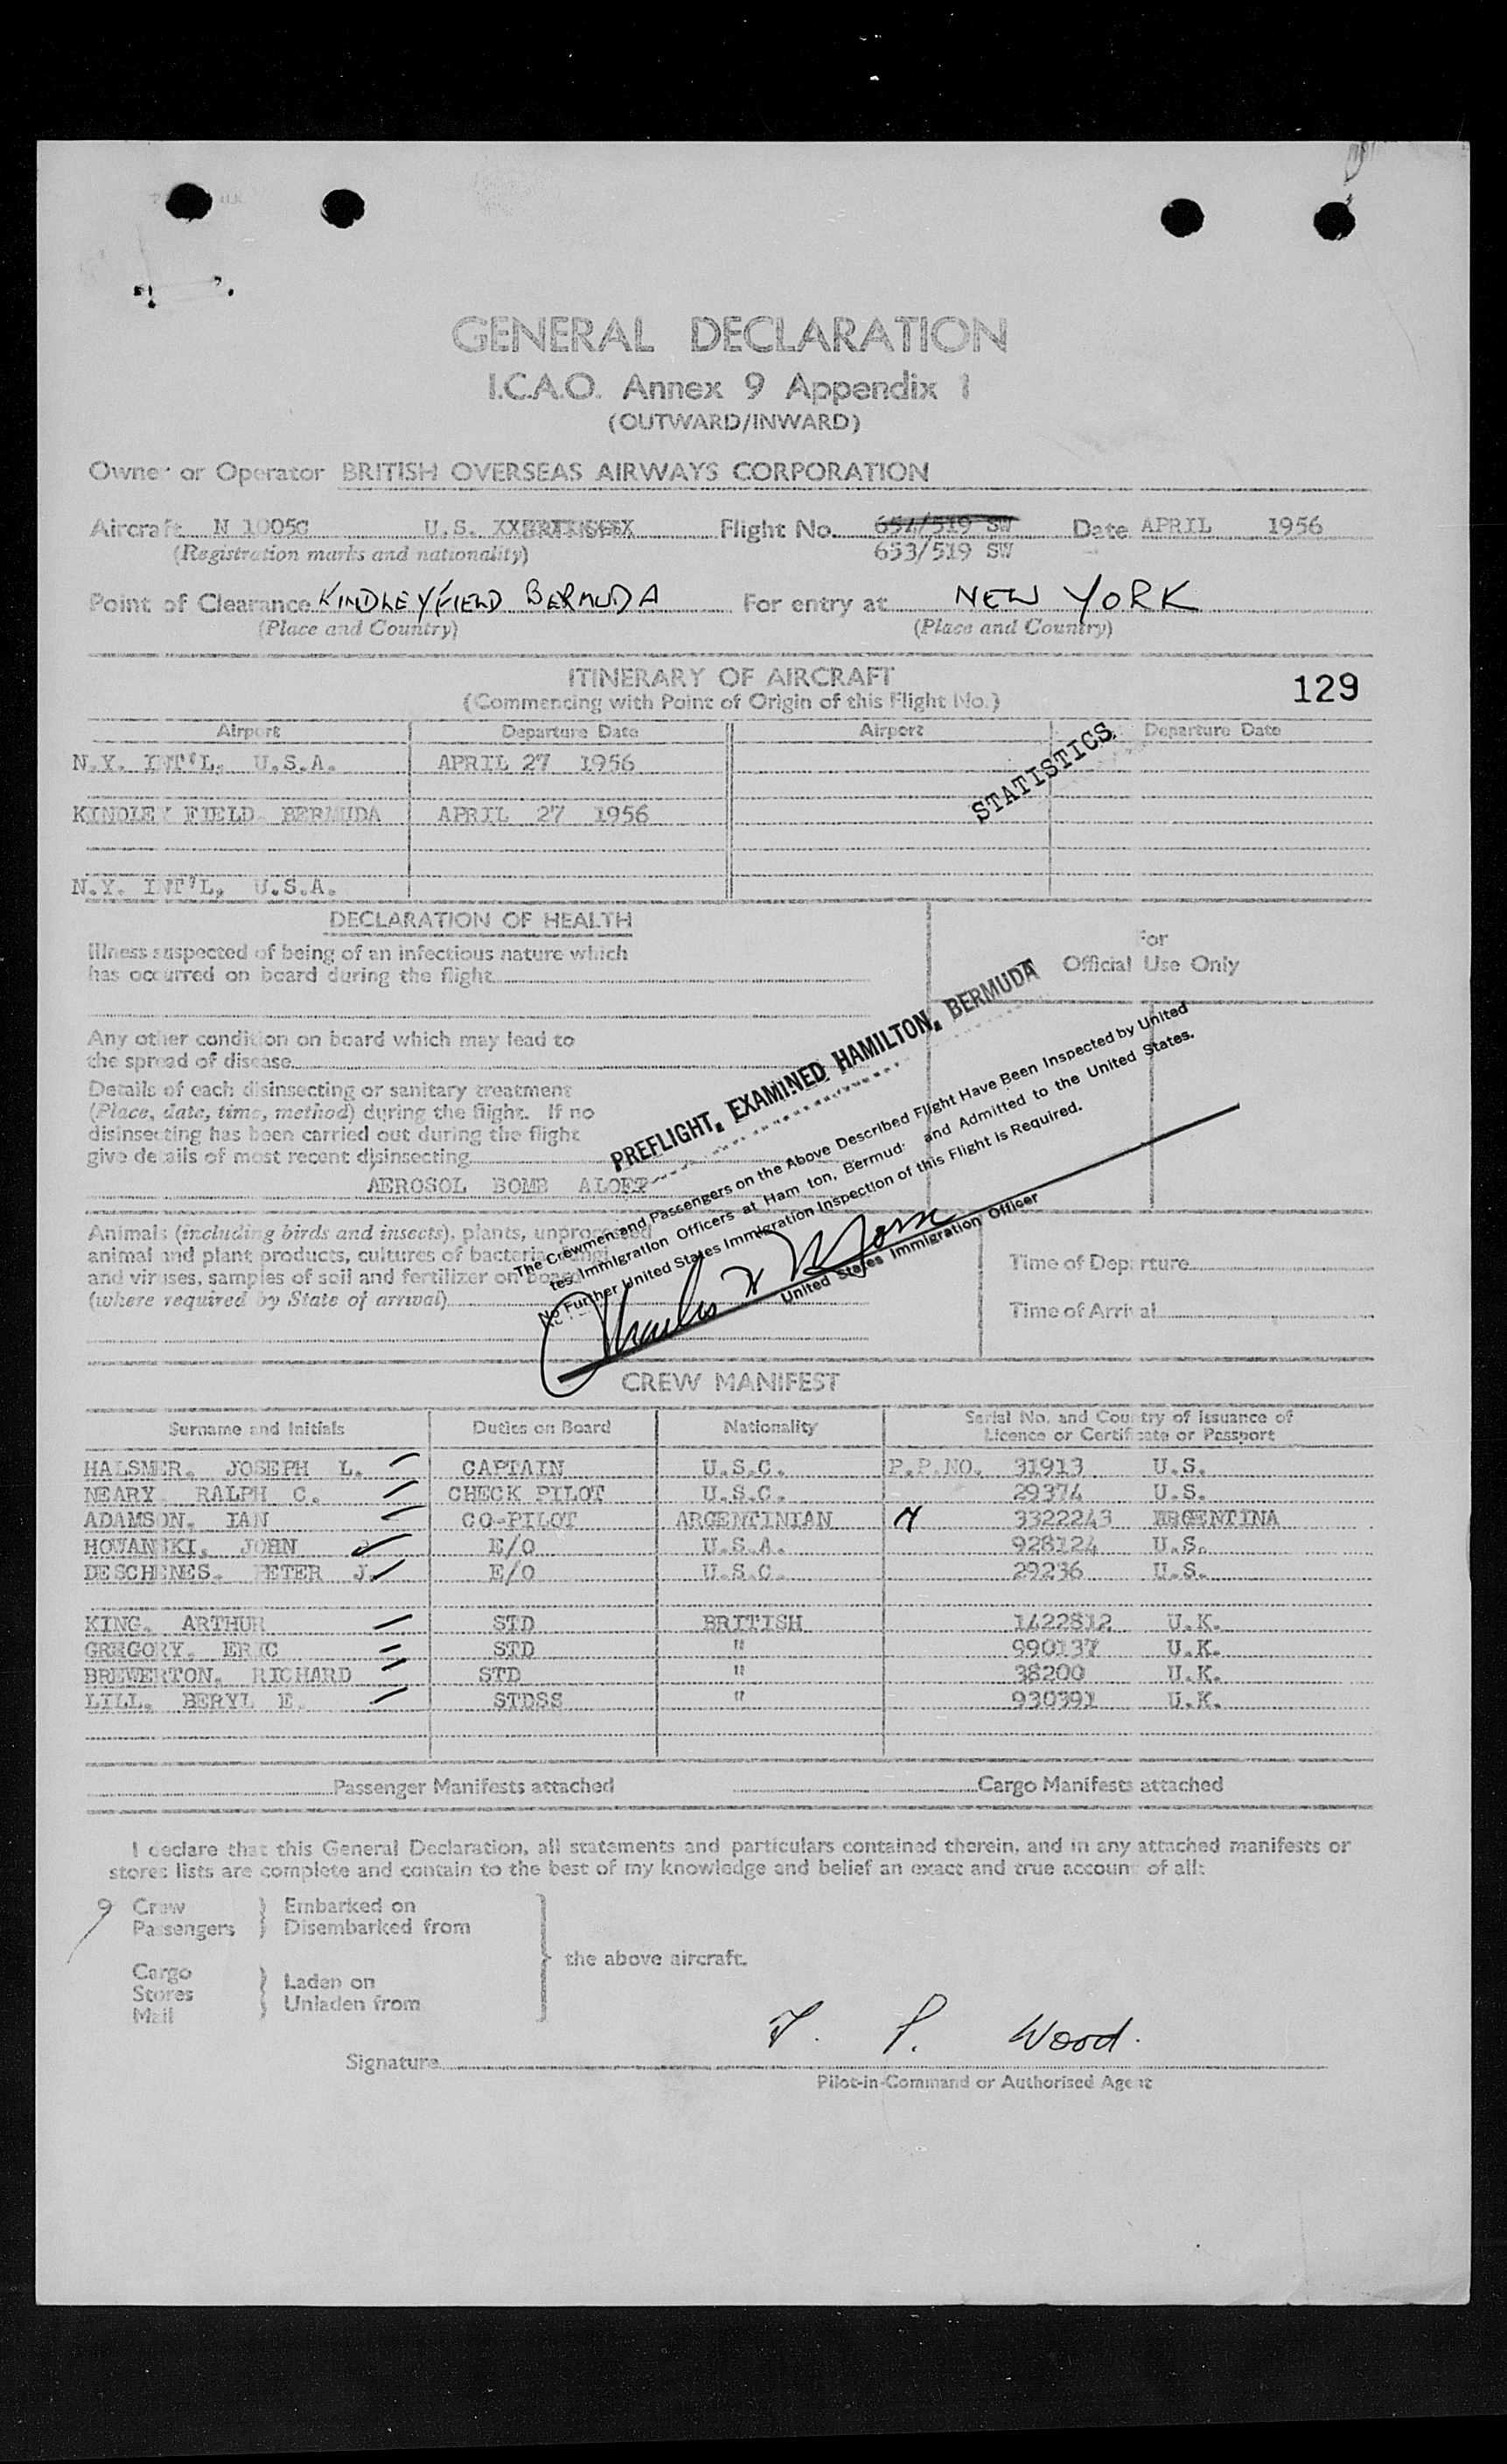 GENERAL DECLARATION
I.C.A.O. Annex 9 Appendix 1
(OUTWARD/INWARD)
Owner or Operator BRITISH OVERSEAS AIRWAYS CORPORATION
Aircraft N 1005C U.S. Flight No. 654/519 SW Date APRIL 1956
(Registration marks and nationality) 653/519 SW
Point of Clearance KINDLEYFIELD BERMUDA For entry at NEW YORK
(Place and Country) (Place and Country)
ITINERARY OF AIRCRAFT
(Commencing with Point of Origin of this Flight No.)
129
Airport Departure Date Airport Departure Date
STATISTICS
N.Y. INT'L, U.S.A. APRIL 27 1956
KINDLEY FIELD BERMUDA APRIL 27 1956
N.Y. INT'L, U.S.A.
DECLARATION OF HEALTH
For
Official Use Only
Illness suspected of being of an infectious nature which
has occurred on board during the flight
Any other condition on board which may lead to
the spread of disease
Details of each disinsecting or sanitary treatment
(Place, date, time, method) during the flight. If no
disinsecting has been carried out during the flight
give details of most recent disinsecting
AEROSOL BOMB ALOFT
PREFLIGHT. EXAMINED HAMILTON, BERMUDA
The Crewmen and Passengers on the Above Described Flight Have Been Inspected by United
tes Immigration Officers at Ham ton, Bermud and Admitted to the United States.
No Further United States Immigration Inspection of this Flight is Required.
United States Immigration Officer
Animals (including birds and insects), plants, unprocessed
animal and plant products, cultures of bacteria, fungi
and viruses, samples of soil and fertilizer on board
(where required by State of arrival)
Time of Departure
Time of Arrival
CREW MANIFEST
Surname and Initials Duties on Board Nationality Serial No. and Country of Issuance of
Licence or Certificate or Passport
HALSMER, JOSEPH L. CAPTAIN U.S.C. P.P.NO. 31913 U.S.
NEARY RALPH C. CHECK PILOT U.S.C. 29374 U.S.
ADAMSON, IAN CO-PILOT ARGENTINIAN 3322243 ARGENTINA
HOWANSKI, JOHN E/O U.S.A. 928124 U.S.
DESCHENES, PETER J. E/O U.S.C. 29236 U.S.
KING, ARTHUR STD BRITISH 1422812 U.K.
GREGORY, ERIC STD " 990137 U.K.
BREWERTON, RICHARD STD " 38200 U.K.
LILL, BERYL E. STDSS " 930391 U.K.
Passenger Manifests attached Cargo Manifests attached
I declare that this General Declaration, all statements and particulars contained therein, and in any attached manifests or
stores lists are complete and contain to the best of my knowledge and belief an exact and true account of all:
9 Crew Embarked on
Passengers Disembarked from
the above aircraft.
Cargo
Stores
Mail
Laden on
Unladen from
Signature P. Wood.
Pilot-in-Command or Authorised Agent